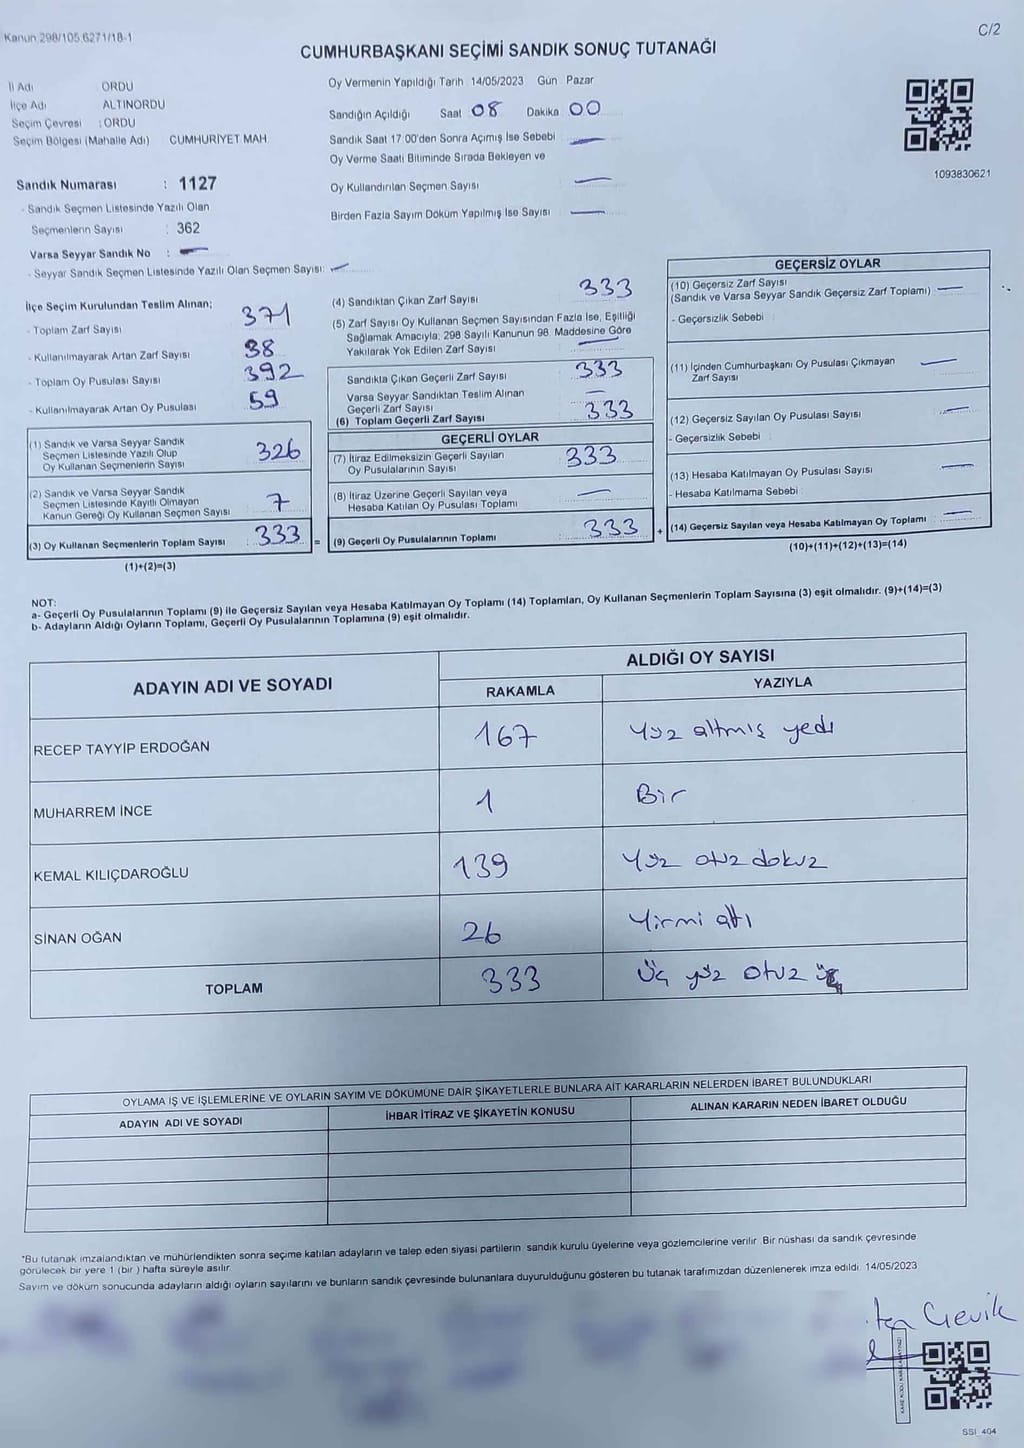 Kanun 298/105 6271/18-1
C/2
CUMHURBAŞKANI SEÇİMİ SANDIK SONUÇ TUTANAĞI
İl Adı ORDU
İlçe Adı ALTINORDU
Seçim Çevresi : ORDU
Seçim Bölgesi (Mahalle Adı) CUMHURİYET MAH.
Sandık Numarası : 1127
- Sandık Seçmen Listesinde Yazılı Olan
Seçmenlerin Sayısı : 362
Varsa Seyyar Sandık No : —
- Seyyar Sandık Seçmen Listesinde Yazılı Olan Seçmen Sayısı: —
Oy Vermenin Yapıldığı Tarih 14/05/2023 Gün Pazar
Sandığın Açıldığı Saat 08 Dakika 00
Sandık Saat 17:00'den Sonra Açımış İse Sebebi —
Oy Verme Saati Bitiminde Sırada Bekleyen ve
Oy Kullandırılan Seçmen Sayısı —
Birden Fazla Sayım Döküm Yapılmış İse Sayısı —
1093830621
İlçe Seçim Kurulundan Teslim Alınan;
- Toplam Zarf Sayısı 371
- Kullanılmayarak Artan Zarf Sayısı 38
- Toplam Oy Pusulası Sayısı 392
- Kullanılmayarak Artan Oy Pusulası 59
(1) Sandık ve Varsa Seyyar Sandık
Seçmen Listesinde Yazılı Olup
Oy Kullanan Seçmenlerin Sayısı 326
(2) Sandık ve Varsa Seyyar Sandık
Seçmen Listesinde Kayıtlı Olmayan
Kanun Gereği Oy Kullanan Seçmen Sayısı 7
(3) Oy Kullanan Seçmenlerin Toplam Sayısı : 333 =
(1)+(2)=(3)
(4) Sandıktan Çıkan Zarf Sayısı 333
(5) Zarf Sayısı Oy Kullanan Seçmen Sayısından Fazla İse, Eşitliği
Sağlamak Amacıyla; 298 Sayılı Kanunun 98. Maddesine Göre
Yakılarak Yok Edilen Zarf Sayısı —
Sandıkta Çıkan Geçerli Zarf Sayısı 333
Varsa Seyyar Sandıktan Teslim Alınan
Geçerli Zarf Sayısı —
(6) Toplam Geçerli Zarf Sayısı 333
GEÇERLİ OYLAR
(7) İtiraz Edilmeksizin Geçerli Sayılan
Oy Pusulalarının Sayısı 333
(8) İtiraz Üzerine Geçerli Sayılan veya
Hesaba Katılan Oy Pusulası Toplamı —
(9) Geçerli Oy Pusulalarının Toplamı : 333 +
GEÇERSİZ OYLAR
(10) Geçersiz Zarf Sayısı
(Sandık ve Varsa Seyyar Sandık Geçersiz Zarf Toplamı) —
- Geçersizlik Sebebi
(11) İçinden Cumhurbaşkanı Oy Pusulası Çıkmayan
Zarf Sayısı —
(12) Geçersiz Sayılan Oy Pusulası Sayısı —
- Geçersizlik Sebebi :
(13) Hesaba Katılmayan Oy Pusulası Sayısı —
- Hesaba Katılmama Sebebi :
(14) Geçersiz Sayılan veya Hesaba Katılmayan Oy Toplamı —
(10)+(11)+(12)+(13)=(14)
NOT:
a- Geçerli Oy Pusulalarının Toplamı (9) ile Geçersiz Sayılan veya Hesaba Katılmayan Oy Toplamı (14) Toplamları, Oy Kullanan Seçmenlerin Toplam Sayısına (3) eşit olmalıdır. (9)+(14)=(3)
b- Adayların Aldığı Oyların Toplamı, Geçerli Oy Pusulalarının Toplamına (9) eşit olmalıdır.
ADAYIN ADI VE SOYADI ALDIĞI OY SAYISI
RAKAMLA YAZIYLA
RECEP TAYYİP ERDOĞAN 167 Yüz altmış yedi
MUHARREM İNCE 1 Bir
KEMAL KILIÇDAROĞLU 139 Yüz otuz dokuz
SİNAN OĞAN 26 Yirmi altı
TOPLAM 333 Üç yüz otuz üç
OYLAMA İŞ VE İŞLEMLERİNE VE OYLARIN SAYIM VE DÖKÜMÜNE DAİR ŞİKAYETLERLE BUNLARA AİT KARARLARIN NELERDEN İBARET BULUNDUKLARI
ADAYIN ADI VE SOYADI İHBAR İTİRAZ VE ŞİKAYETİN KONUSU ALINAN KARARIN NEDEN İBARET OLDUĞU
*Bu tutanak imzalandıktan ve mühürlendikten sonra seçime katılan adayların ve talep eden siyasi partilerin sandık kurulu üyelerine veya gözlemcilerine verilir. Bir nüshası da sandık çevresinde
görülecek bir yere 1 (bir ) hafta süreyle asılır.
Sayım ve döküm sonucunda adayların aldığı oyların sayılarını ve bunların sandık çevresinde bulunanlara duyurulduğunu gösteren bu tutanak tarafımızdan düzenlenerek imza edildi. 14/05/2023
Çevik
SSI 404